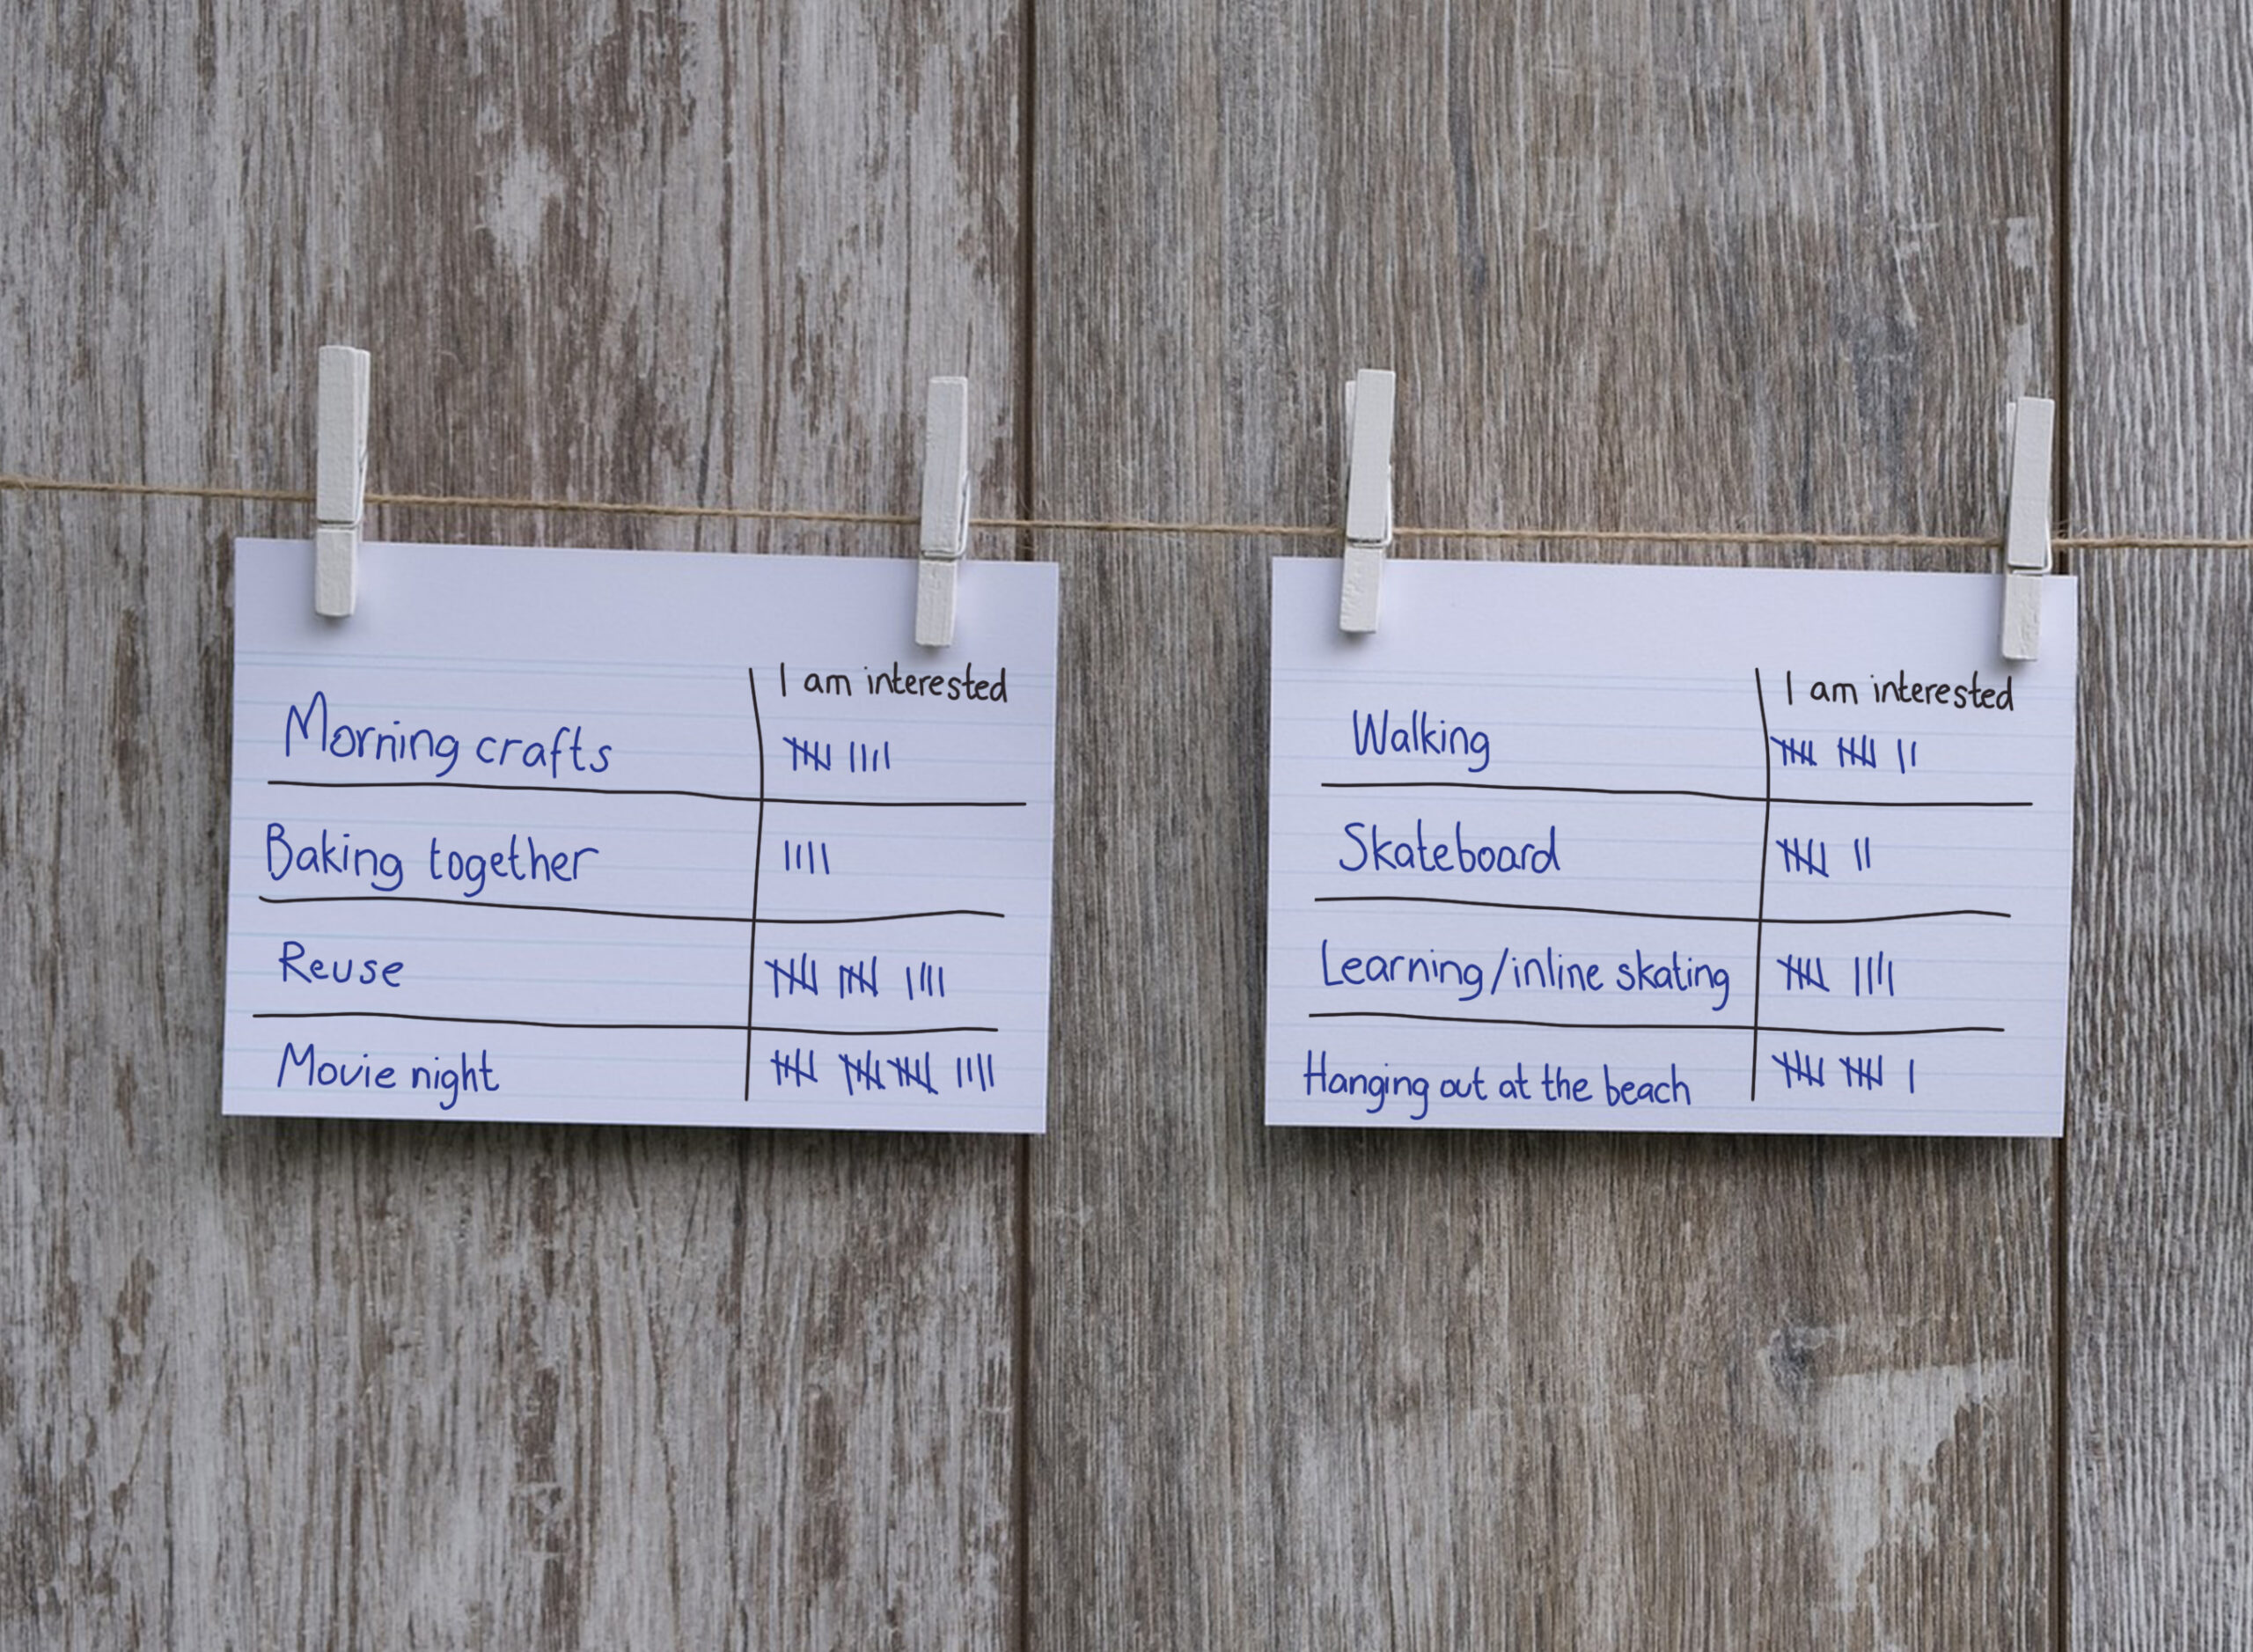 I am interested
Morning crafts 𝍸 ||||
Baking together ||||
Reuse 𝍸 𝍸 ||||
Movie night 𝍸 𝍸 𝍸 ||||
I am interested
Walking 𝍸 𝍸 ||
Skateboard 𝍸 ||
Learning/inline skating 𝍸 ||||
Hanging out at the beach 𝍸 𝍸 |